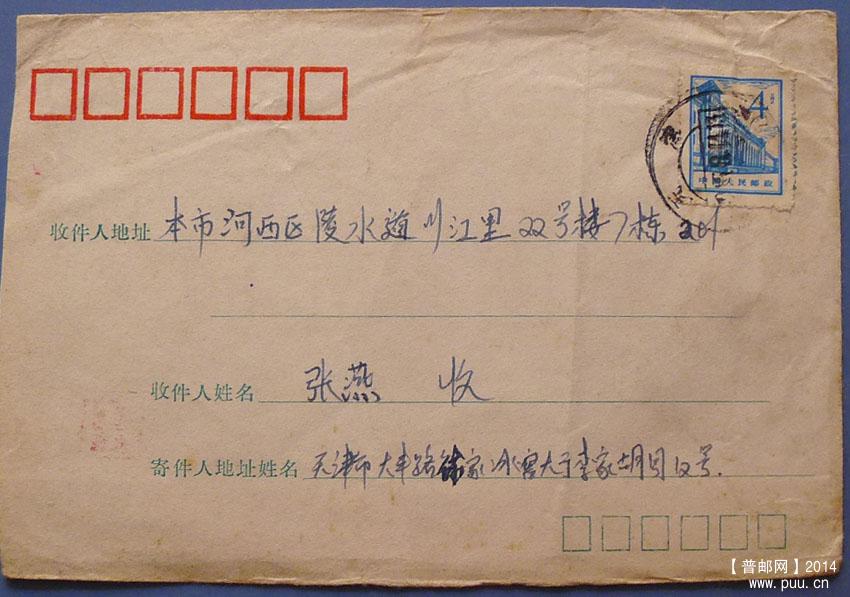 4分
中国人民邮政
天津
收件人地址 本市河西区陵水道川江里双号楼7栋 201
收件人姓名 张燕 收
寄件人地址姓名 天津市大丰路 家冰窖大于李家胡同12号.
【普邮网】2014
www.puu.cn